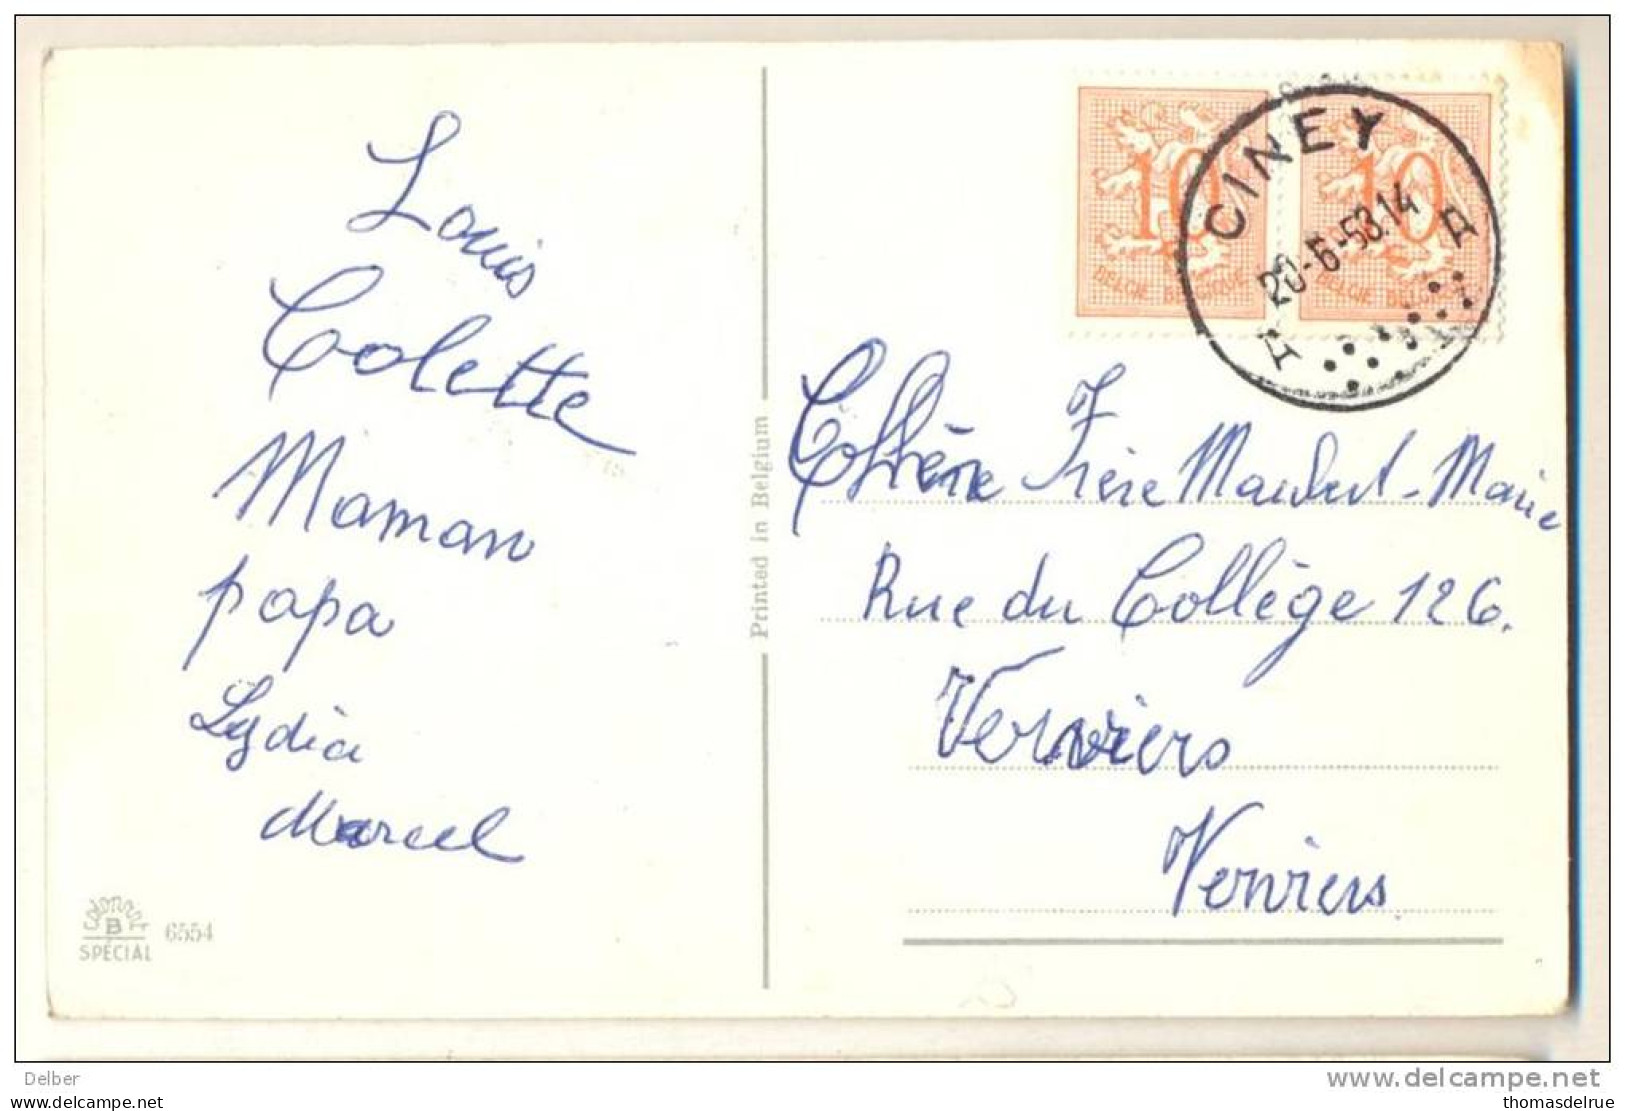 Louis
Colette
Maman
papa
Lydia
Marcel
COLORPROT
B
SPÉCIAL
6554
Printed in Belgium
10
BELGIE BELGIQUE
10
BELGIE BELGIQUE
CINEY
20-6-53.14
A A
Frère Marie
Rue du Collège 126.
Verviers
Verviers
Delber
www.delcampe.net
thomasdelrue